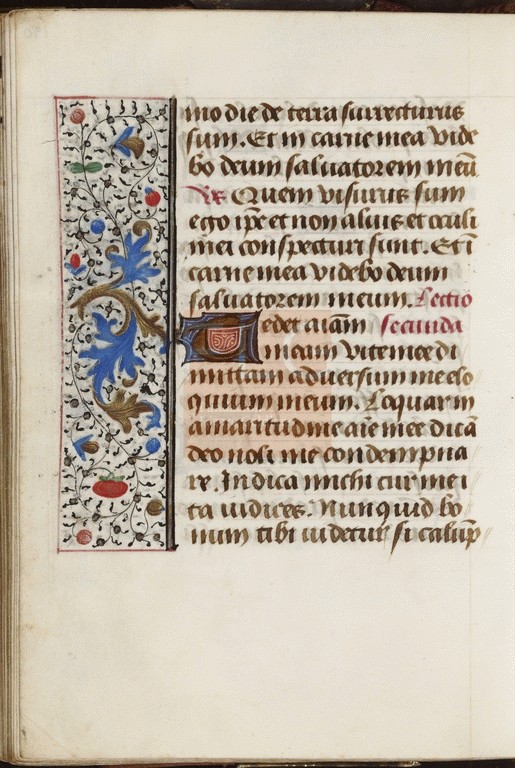 mo die de terra surrecturus
sum. Et in carne mea vide
bo deum saluatorem meū
Vs Quem visurus sum
ego ip̄e et non alius et oculi
mei conspecturi sunt. Et ī
carne mea videbo deum
saluatorem meum. Lectio
Tedet aīam secunda
meam vite mee di
mittam aduersum me elo
quium meum. Loquar in
amaritudine aīe mee dicā
deo noli me condempna
re. Indica michi cur me i
ta iudices. Nunquid bo
num tibi videtur si calūp